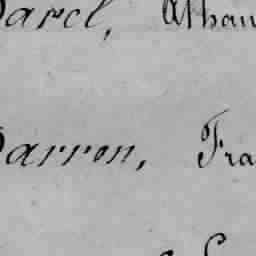 arel, Athan
arron, Fra